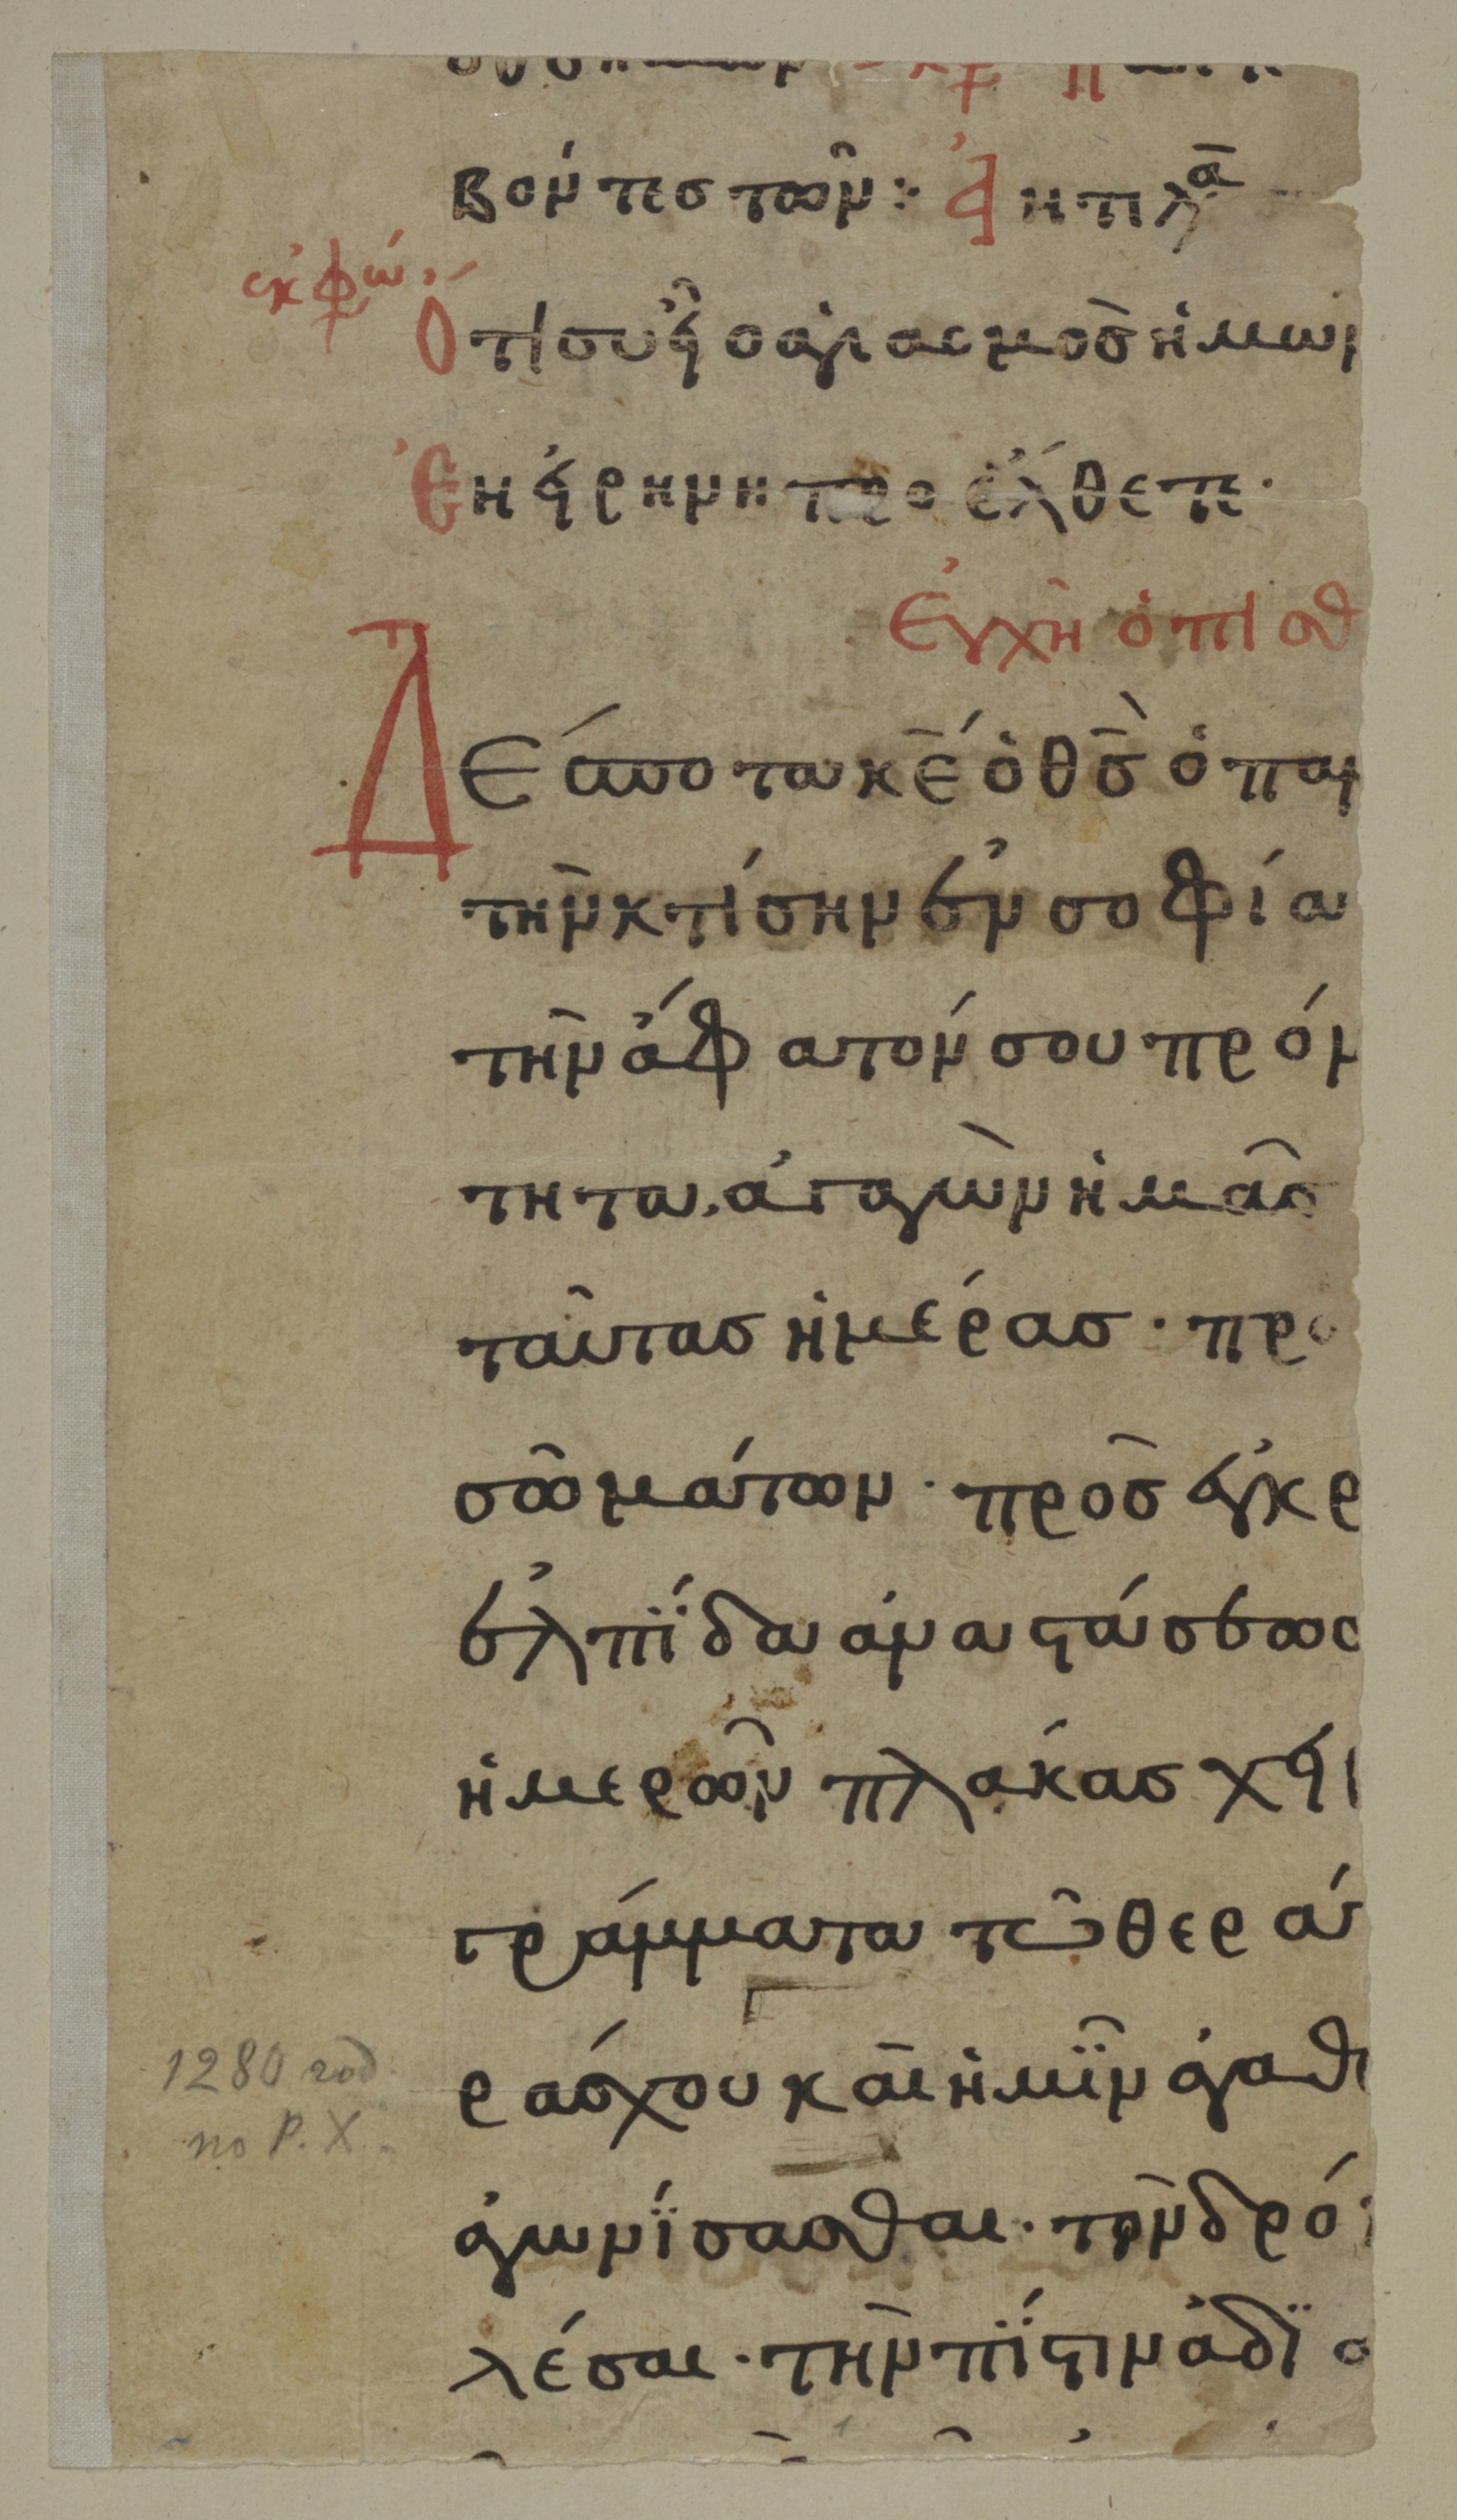 βόντες τῶν: ἐν πλᾱ
ἐκφώ.
Ὅτι σὺ εἶ ὁ ἁγιασμὸς ἡμῶν
Ἐν εἰρήνη προέλθετε·
Εὐχὴ ὀπισθ
Δέσποτα κ̅ε̅ ὁ θ̅ς̅ ὁ παν
τὴν κτίσην ἐν σοφία
τὴν ἄφατόν σου πρόν
τητα, ἀγαγὼν ἡμᾶς
ταῦτας ἡμέρας· προ
σωμάτων· πρὸς ἐγκρ
ἐλπίδα ἀναστάσεως
ἡμερῶν πλάκας χεί
γράμματα τῶ θερά
ράσχου καὶ ἡμῖν ἀγαθ
ἀγωνίσασθαι· τὸν δρό
λέσαι· τὴν πίστιν ἀδι
1280 год
по Р. Х.